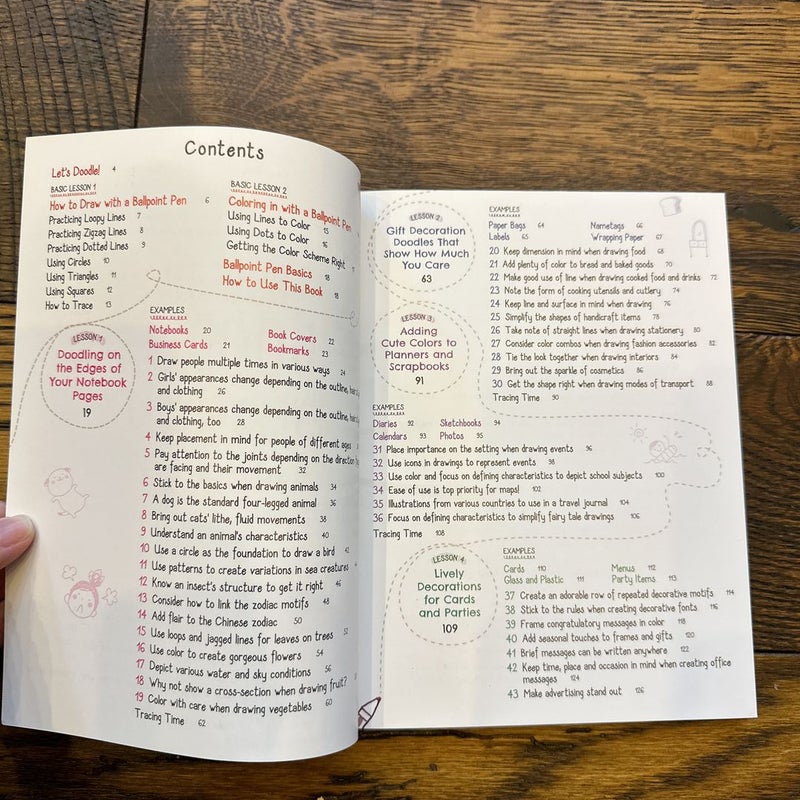 Contents
Let's Doodle! 4
BASIC LESSON 1
How to Draw with a Ballpoint Pen 6
Practicing Loopy Lines 7
Practicing Zigzag Lines 8
Practicing Dotted Lines 9
Using Circles 10
Using Triangles 11
Using Squares 12
How to Trace 13
BASIC LESSON 2
Coloring in with a Ballpoint Pen
Using Lines to Color 15
Using Dots to Color 16
Getting the Color Scheme Right
Ballpoint Pen Basics 18
How to Use This Book 18
LESSON 1
Doodling on
the Edges of
Your Notebook
Pages
19
EXAMPLES
Notebooks 20
Book Covers 22
Business Cards 21
Bookmarks 23
1 Draw people multiple times in various ways 24
2 Girls' appearances change depending on the outline,
and clothing 26
3 Boys' appearances change depending on the outline,
and clothing, too 28
4 Keep placement in mind for people of different ages
5 Pay attention to the joints depending on the direction
are facing and their movement 32
6 Stick to the basics when drawing animals 34
7 A dog is the standard four-legged animal 36
8 Bring out cats' lithe, fluid movements 38
9 Understand an animal's characteristics 40
10 Use a circle as the foundation to draw a bird 42
11 Use patterns to create variations in sea creatures
12 Know an insect's structure to get it right 46
13 Consider how to link the zodiac motifs 48
14 Add flair to the Chinese zodiac 50
15 Use loops and jagged lines for leaves on trees 52
16 Use color to create gorgeous flowers 54
17 Depict various water and sky conditions 56
18 Why not show a cross-section when drawing fruit?
19 Color with care when drawing vegetables 60
Tracing Time 62
LESSON 2
Gift Decoration
Doodles That
Show How Much
You Care
63
EXAMPLES
Paper Bags 64
Nametags 66
Labels 65
Wrapping Paper 67
20 Keep dimension in mind when drawing food 68
21 Add plenty of color to bread and baked goods 70
22 Make good use of line when drawing cooked food and drinks 72
23 Note the form of cooking utensils and cutlery 74
24 Keep line and surface in mind when drawing 76
25 Simplify the shapes of handicraft items 78
26 Take note of straight lines when drawing stationery 80
27 Consider color combos when drawing fashion accessories 82
28 Tie the look together when drawing interiors 84
29 Bring out the sparkle of cosmetics 86
30 Get the shape right when drawing modes of transport 88
Tracing Time 90
LESSON 3
Adding
Cute Colors to
Planners and
Scrapbooks
91
EXAMPLES
Diaries 92
Sketchbooks 94
Calendars 93
Photos 95
31 Place importance on the setting when drawing events 96
32 Use icons in drawings to represent events 98
33 Use color and focus on defining characteristics to depict school subjects 100
34 Ease of use is top priority for maps! 102
35 Illustrations from various countries to use in a travel journal 104
36 Focus on defining characteristics to simplify fairy tale drawings 106
Tracing Time 108
LESSON 4
Lively
Decorations
for Cards
and Parties
109
EXAMPLES
Cards 110
Menus 112
Glass and Plastic 111
Party Items 113
37 Create an adorable row of repeated decorative motifs 114
38 Stick to the rules when creating decorative fonts 116
39 Frame congratulatory messages in color 118
40 Add seasonal touches to frames and gifts 120
41 Brief messages can be written anywhere 122
42 Keep time, place and occasion in mind when creating office
messages 124
43 Make advertising stand out 126